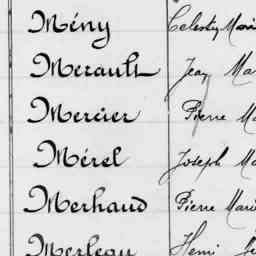 Mény Celestin Mari
Merault Jean Ma
Mercier Pierre Ma
Mérel Joseph Ma
Merhand Pierre Mari
Merleau Henri